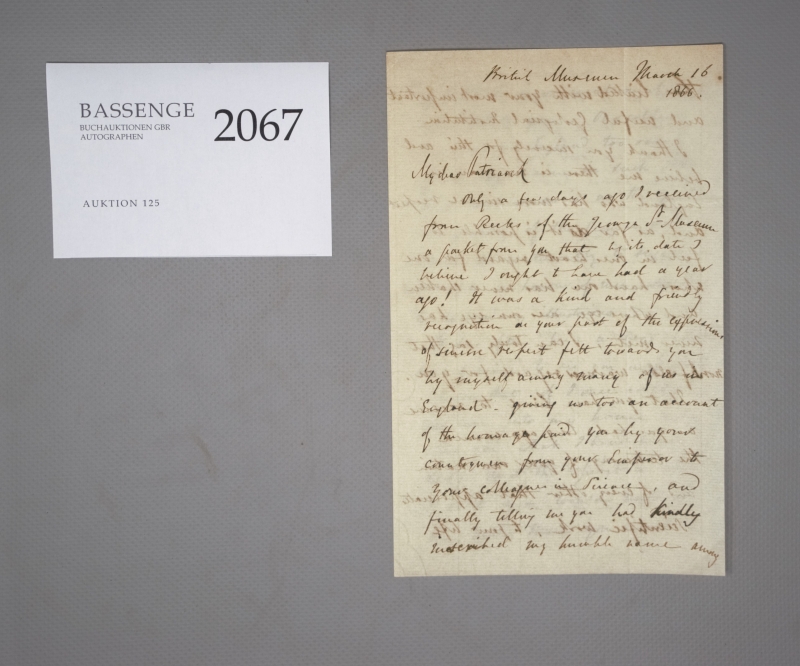 BASSENGE
BUCHAUKTIONEN GBR
AUTOGRAPHEN
2067
AUKTION 125
British Museum March 16
1866.
My dear Patriarch
Only a few days ago I received
from Reeks of the Jermyn St. Museum
a packet from you that by its date I
believe I ought to have had a year
ago! It was a kind and friendly
recognition on your part of the expressions
of sincere respect felt towards you
by myself among many of us in
England - giving us too an account
of the homage paid you by your
countrymen from your Emperor to
your colleagues in Science, and
finally telling me you had kindly
inscribed my humble name among